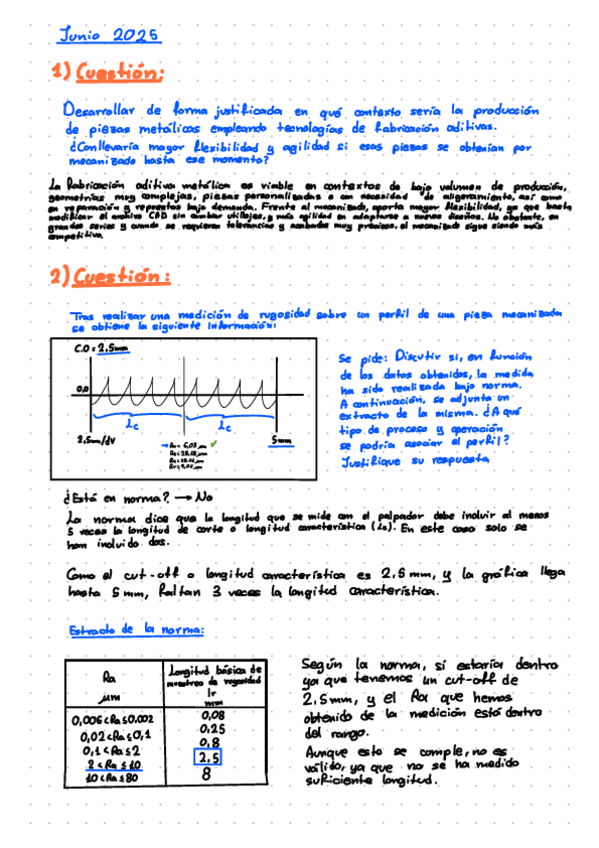 Junio 2025
1) Cuestión:
Desarrollar de forma justificada en qué contexto sería la producción
de piezas metálicas empleando tecnologías de fabricación aditivas.
¿Conllevaría mayor flexibilidad y agilidad si esas piezas se obtenían por
mecanizado hasta ese momento?
La fabricación aditiva metálica es viable en contextos de bajo volumen de producción,
geometrías muy complejas, piezas personalizadas o con necesidad de aligeramiento, así como
en reparación y repuestos bajo demanda. Frente al mecanizado, aporta mayor flexibilidad, ya que basta
modificar el archivo CAD sin cambiar utillajes, y más agilidad en adaptarse a nuevos diseños. No obstante, en
grandes series y cuando se requieren tolerancias y acabados muy precisos, el mecanizado sigue siendo más
competitivo.
2) Cuestión:
Tras realizar una medición de rugosidad sobre un perfil de una pieza mecanizada
se obtiene la siguiente información:
C.O = 2,5mm
0,0
Lc
Lc
2,5um/dV
5mm
Se pide: Discutir si, en función
de los datos obtenidos, la medida
ha sido realizada bajo norma.
A continuación, se adjunta un
extracto de la misma. ¿A qué
tipo de proceso y operación
se podría asociar el perfil?
Justifique su respuesta
¿Está en norma? → No
La norma dice que la longitud que se mide con el palpador debe incluir al menos
5 veces la longitud de corte o longitud característica (Lc). En este caso solo se
han incluido dos.
Como el cut-off o longitud característica es 2,5mm, y la gráfica llega
hasta 5mm, faltan 3 veces la longitud característica.
Estracto de la norma:
Ra
μm
Longitud básica de
muestreo de rugosidad
lr
mm
0,006<Ra≤0,002 0,08
0,02<Ra≤0,1 0,25
0,1<Ra≤2 0,8
2<Ra≤10 2,5
10<Ra≤80 8
Según la norma, sí estaría dentro
ya que tenemos un cut-off de
2,5mm, y el Ra que hemos
obtenido de la medición está dentro
del rango.
Aunque esto se cumple, no es
válido, ya que no se ha medido
suficiente longitud.